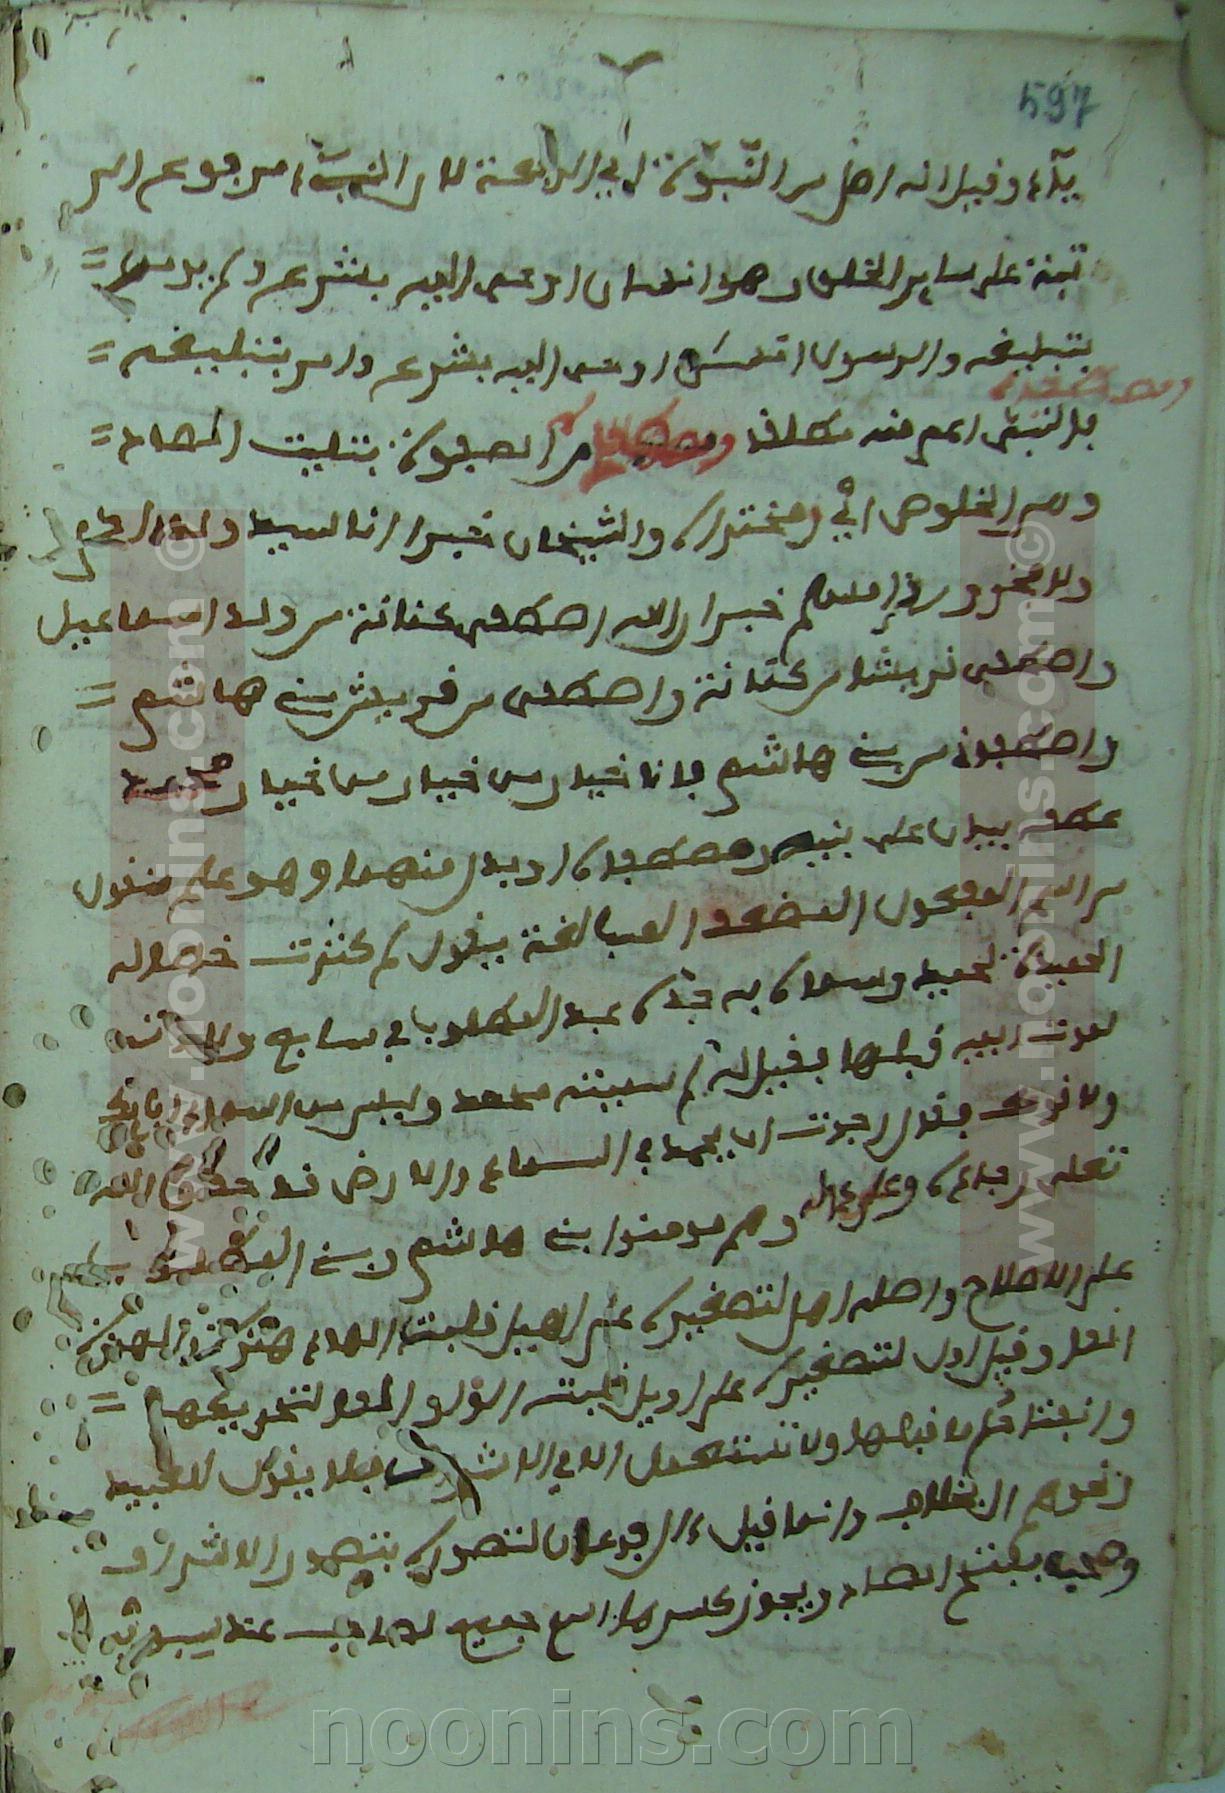 597
ياء وقيل انه اصل من النبوة اي الرفعة لان النبي مرفوع الر
تبة على ساير الخلق وهو انسان اوحى اليه بشرع ولم يومر
بتبليغه والرسول انسان اوحى اليه بشرع وامر بتبليغه
فالنبي اعم منه مطلقا ومصطفى من الصفوة بتثليث الصاد
ومصطفى
وهي الخلوص اي مختار والشيخان خبر انا سيد ولد ادم
ولا فخر ومسلم خبر ان الله اصطفى كنانة من ولد اسماعيل
واصطفى قريشا من كنانة واصطفى من قريش بني هاشم
واصطفاني من بني هاشم فانا خيار من خيار من خيار محمد
عطف بيان على نبيه ومصطفاه او بدل منهما وهو علم منقول
من اسم المفعول المضعف المبالغة يقول لمن كثرت خصاله
الحميدة محمد وسماه به جده عبد المطلب في سابع ولادته
لموت ابيه قبلها فقيل له لم سميته محمدا وليس من اسماء ابايك
ولا قومك فقال رجوت ان يحمد في السماء والارض وقد حقق الله
تعالى رجاءه وعلى اله وهم مومنوا بني هاشم وبني المطلب
على الاصلاح واصله اهل لتصغيره على اهيل قلبت الهاء همزة والهمزة
الفا وقيل اول لتصغيره على اويل قلبت الواو الفا لتحريكها
وانفتاح ما قبلها ولا تستعمل الا في الاشراف فلا يقول للعبيد
ونحوهم ال فلان وانما قيل ءال فرعون لتصوره بتصور الاشراف
وصحبه بفتح الصاد ويجوز كسرها اسم جمع لصاحب عند سيبويه
www.noonins.com ©
www.noonins.com ©
noonins.com